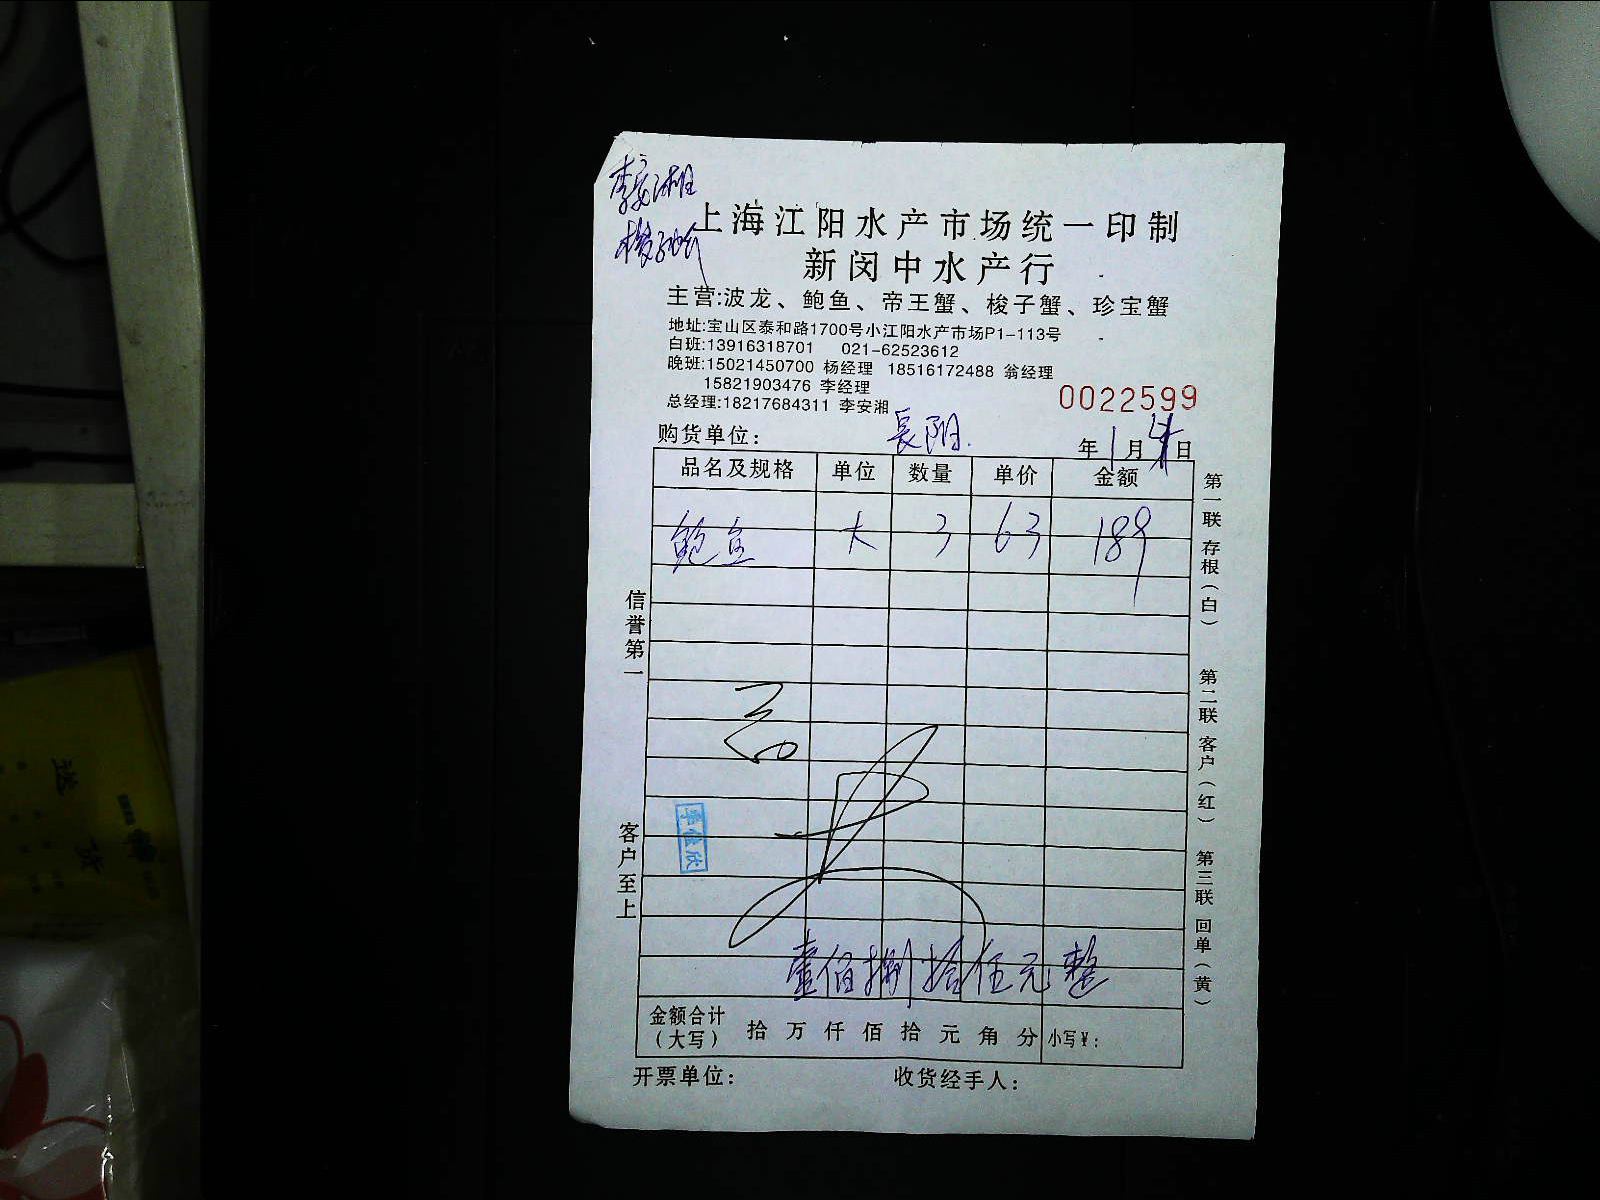 李安湘
上海江阳水产市场统一印制
新闵中水产行
主营:波龙、鲍鱼、帝王蟹、梭子蟹、珍宝蟹
地址:宝山区泰和路1700号小江阳水产市场P1-113号
白班:13916318701 021-62523612
晚班:15021450700 杨经理 18516172488 翁经理
15821903476 李经理
总经理:18217684311 李安湘
0022599
购货单位: 長阳.
年1月 日
品名及规格 单位 数量 单价 金额
鲍鱼 大 3 63 189
壹佰捌拾伍元整
金额合计(大写) 拾 万 仟 佰 拾 元 角 分 小写¥:
开票单位: 收货经手人:
信誉第一
客户至上
第一联存根(白)
第二联客户(红)
第三联回单(黄)